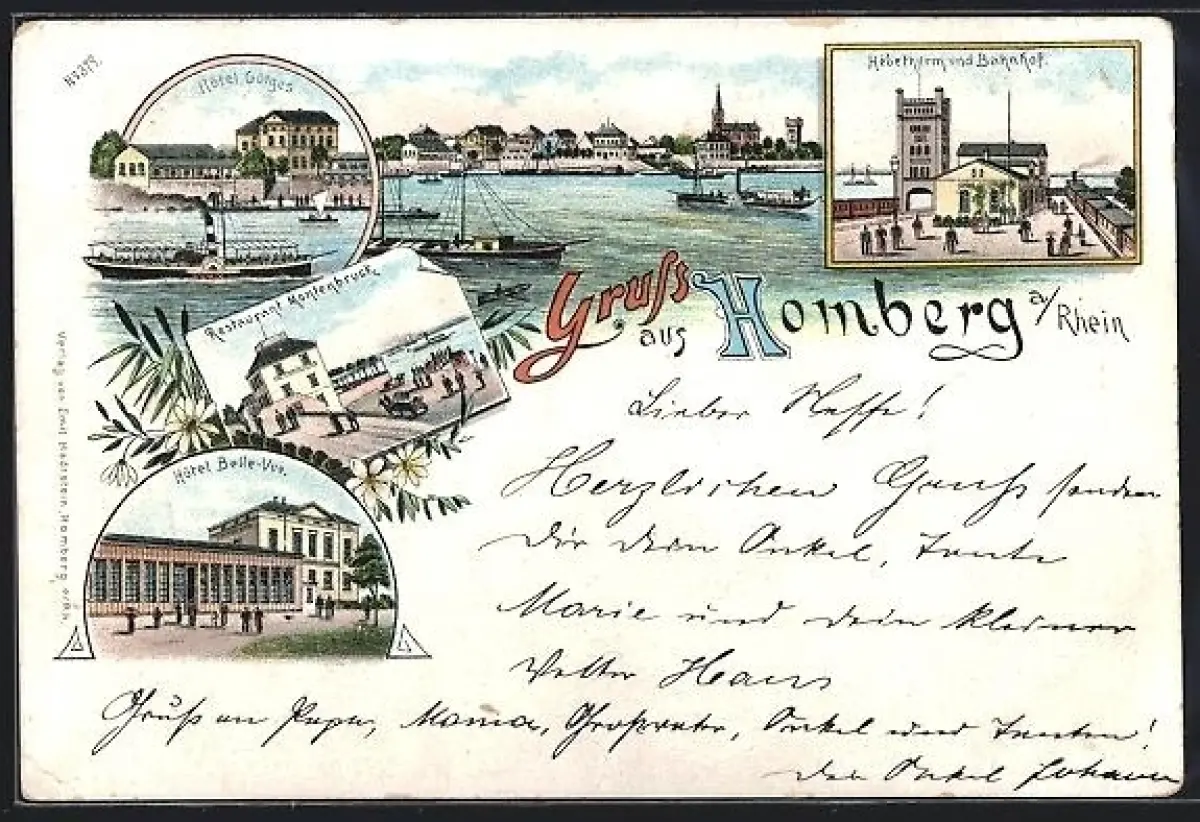 No 379.
Hôtel Görges
Hebethurm und Bahnhof.
Restaurant Montenbruck.
Gruss
aus Homberg a/Rhein
Hôtel Belle-Vue.
Verlag von Emil Hadstein, Homberg a/Rh.
Lieber Neffe!
Herzlichen Gruß senden
Dir dein Onkel, Tante
Marie und dein kleiner
Vetter Hans
Gruß an Papa, Mama, Großvater, Onkel und Tanten!
Dein Onkel Johann